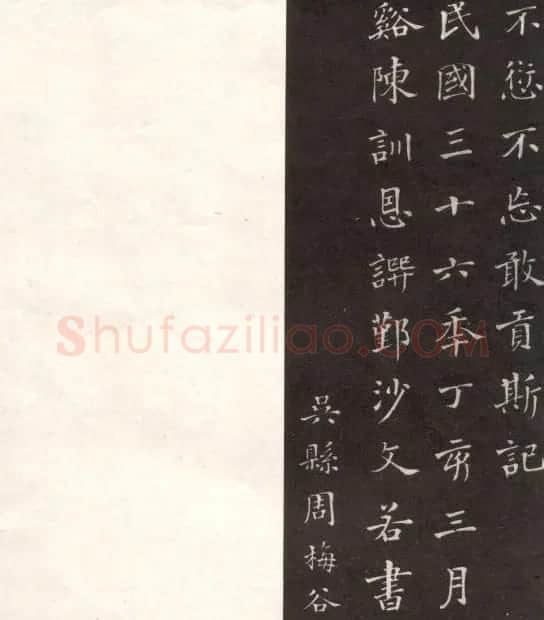 不愆不忘敢貢斯記
民國三十六年丁亥三月
谿陳訓恩譔鄞沙文若書
吳縣周梅谷
Shufaziliao.COM